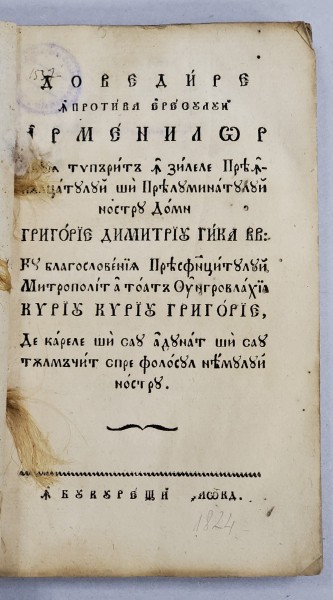 ДОВЕДИ́РЕ
ꙟПРОТИ́ВА ЕРЕСУЛУЙ
А҆РМЕ́НИЛѠР
тѷпъри́тъ ꙟ҆ зи́леле Прѣꙟ-
нълца́тулуй ши Прѣлумина́тулуй
но́стру До́мн
ГРИГО́РІЕ ДИМИ́ТРІУ ГИ́КА ВВ:
Ку благослове́нїѧ Прѣсфн҃ци́тулуй,
Митрополи́т а тоа́тъ Оу҆нгровла́хїѧ
КѴ́РІУ КѴ́РІУ ГРИГО́РІЕ,
Де ка́реле ши сау а҆дуна́т ши сау
тѫлмъчи́т спре фоло́сул нѣ́мулуй
но́стру.
ꙟ҆ БУКУРЕ́ЩИ ҂аѡкд.
1824
1527